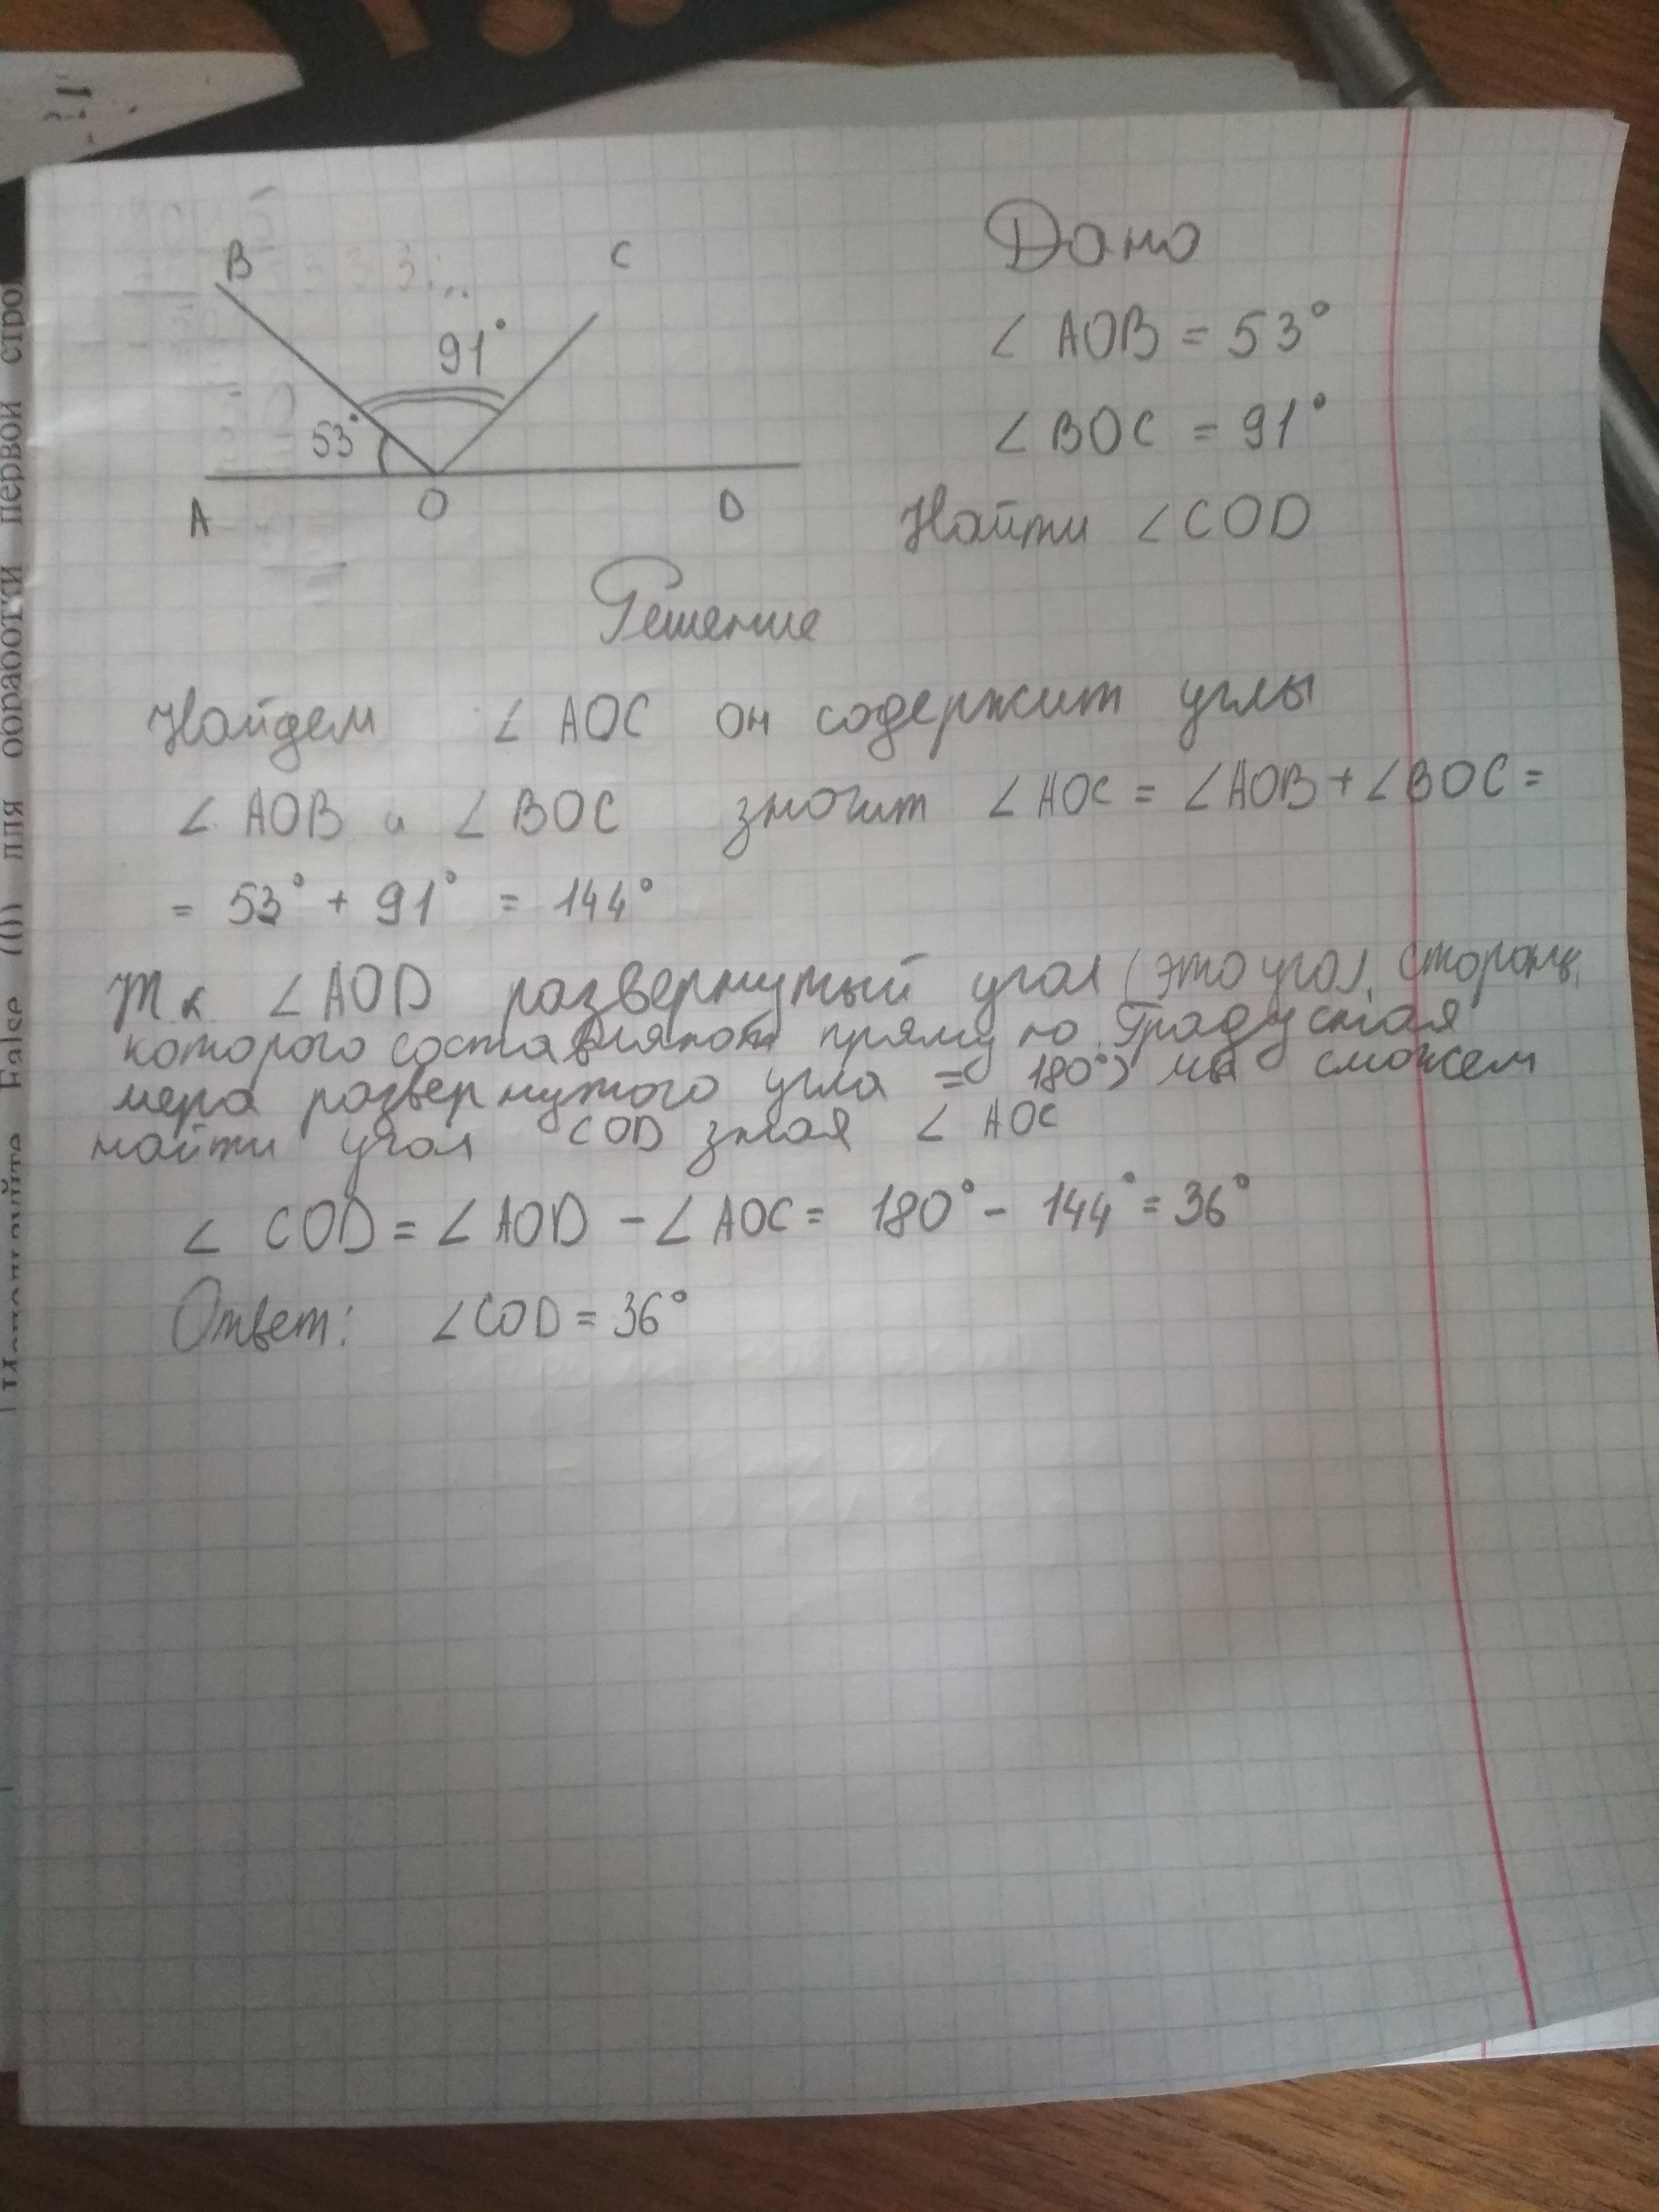 B
C
91°
53°
A
O
D
Дано
∠ AOB = 53°
∠ BOC = 91°
Найти ∠COD
Решение
Найдем ∠ AOC он содержит углы
∠ AOB и ∠ BOC значит ∠ AOC = ∠AOB + ∠BOC =
= 53° + 91° = 144°
Т к ∠ AOD развернутый угол (это угол, стороны
которого составляют прямую. Градусная
мера развернутого угла = 180°) мы сможем
найти угол COD зная ∠ AOC
∠ COD = ∠ AOD - ∠ AOC = 180° - 144° = 36°
Ответ: ∠COD = 36°
для обработки первой стро
False